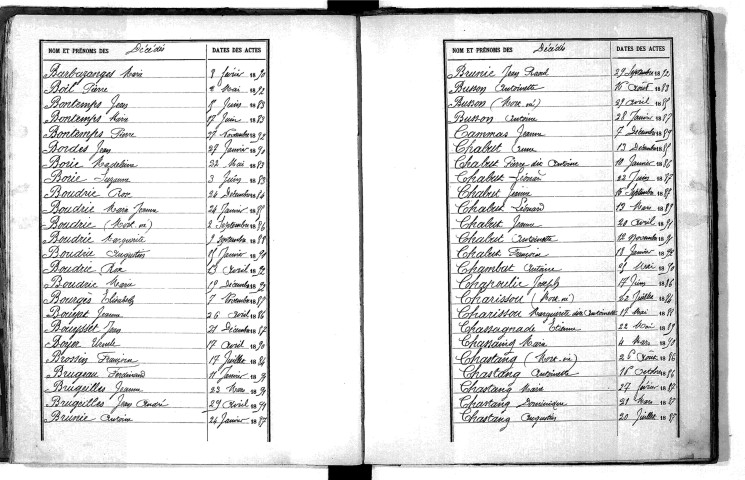 NOM ET PRÉNOMS DES Décédés DATES DES ACTES
Barbazanges Marie 3 février 1890
Boil Pierre 2 Mai 1892
Bontemps Jean 5 Juin 1883
Bontemps Marie 17 Juin 1883
Bontemps Pierre 27 Novembre 1892
Bordes Jean 27 Janvier 1890
Borie Magdeleine 22 Mai 1883
Borie Suzanne 3 Juin 1883
Boudrie Rose 26 Décembre 1884
Boudrie Marie Jeanne 24 Janvier 1885
Boudrie (Mort né) 2 Septembre 1886
Boudrie Marguerite 9 1888
Boudrie Augustine 15 Janvier 1890
Boudrie 13 Avril 1892
Boudrie Marie 19 Décembre 1892
Bourges Elisabeth 7 Novembre 1885
Bouysset Jeanne 26 avril 1886
Bouysset Jean 21 Décembre 1887
Boyer Ursule 17 avril 1890
Brossin Françoise 17 Juillet 1886
Brugeau Ferdinand 11 Janvier 1894
Brugeilles Jeanne 23 Mars 1894
Brugeilles Jean André 29 Avril 1894
Brunie Antoine 24 Janvier 1887
NOM ET PRÉNOMS DES Décédés DATES DES ACTES
Brunie Jean 29 Septembre 1892
Busson Antoinette 15 Août 1883
Busson (Mort né) 29 avril 1885
Busson Antoine 28 Janvier 1887
Cammas Jeanne 7 Décembre 1889
Chabut Anne 13 Décembre 1885
Chabut Pierre dit Antoine 10 Janvier 1886
Chabut Léonard 22 Juin 1887
Chabut Jeanne 15 Septembre 1888
Chabut Léonard 13 Mars 1889
Chabut Jeanne 20 avril 1891
Chabut Antoinette 12 Novembre 1891
Chabut Françoise 18 Janvier 1894
Chambut Antoine 25 Mai 1890
Chapoulie Joseph 17 Juin 1886
Charissou (Mort né) 22 Juillet 1884
Charissou Marguerite dite Antoinette 17 Mai 1888
Chassagnade Etienne 22 Mai 1889
Chassaing Marie 4 Mars 1890
Chastang (Mort né) 26 Août 1886
Chastang Antoinette 16 Octobre 1886
Chastang Marie 27 février 1887
Chastang Dominique 31 Mars 1887
Chastang Augustin 20 Juillet 1887